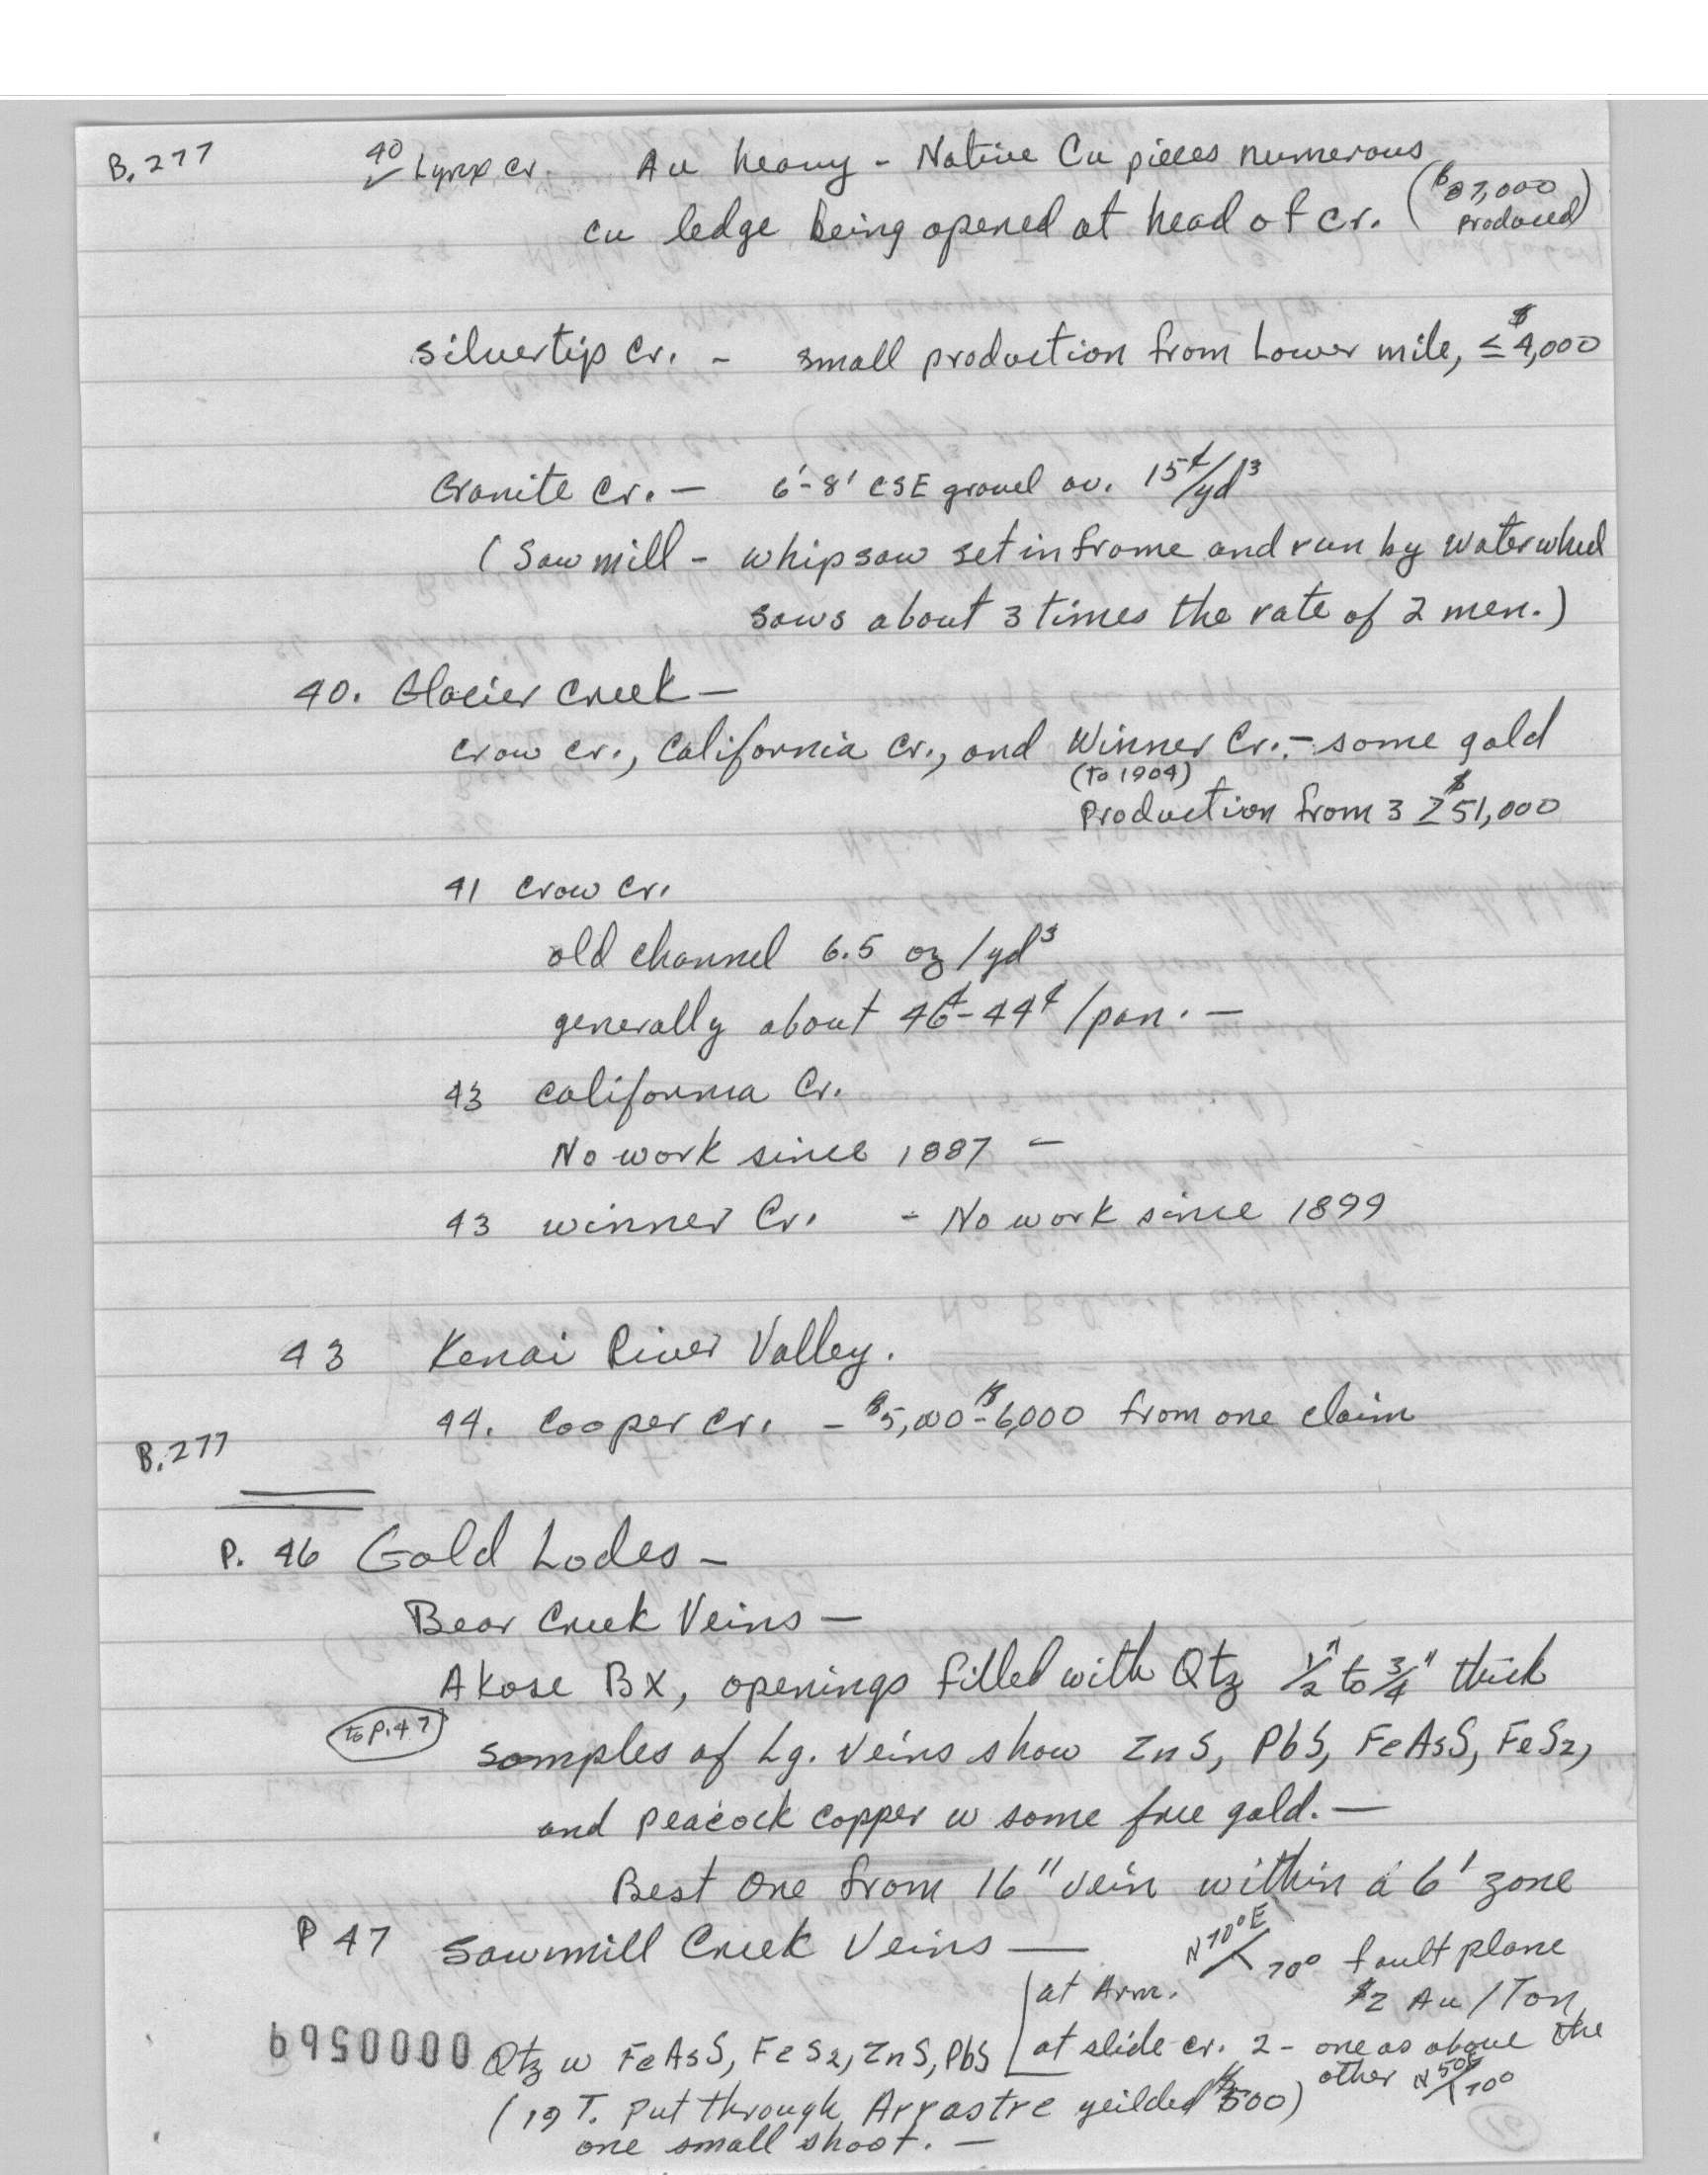 B.277 40 Lynx Cr. Au heavy - Native Cu pieces numerous
Cu ledge being opened at head of Cr. ($37,000 produced)
Silvertip Cr. - small production from Lower mile, ≤ $4,000
Granite Cr. - 6'-8' CSE gravel av. 15¢/yd³
(Saw mill - whipsaw set in frame and run by waterwheel
saws about 3 times the rate of 2 men.)
40. Glacier Creek -
Crow Cr., California Cr., and Winner Cr. - some gold
(to 1904)
Production from 3 ≥ $51,000
41 Crow Cr.
old channel 6.5 oz /yd³
generally about 46¢-44¢ /pan. -
43 California Cr.
No work since 1887 -
43 Winner Cr. - No work since 1899
43 Kenai River Valley.
44. Cooper Cr. - $5,000-$6,000 from one claim
B.277
P. 46 Gold Lodes -
Bear Creek Veins -
Akose BX, openings filled with Qtz 1/2" to 3/4" thick
to P.47
samples of Lg. Veins show ZnS, PbS, FeAsS, FeS2,
and Peacock copper w some free gold. -
Best One from 16" vein within a 6' zone
P 47 Sawmill Creek Veins - N70°E 70° fault plane
at Arm. $2 Au /Ton,
Qtz w FeAsS, FeS2, ZnS, PbS at slide cr. 2 - one as above the
other N50E 70°
(19 T. Put through Arrastre yeilded $500)
one small shoot. -
00000569
16